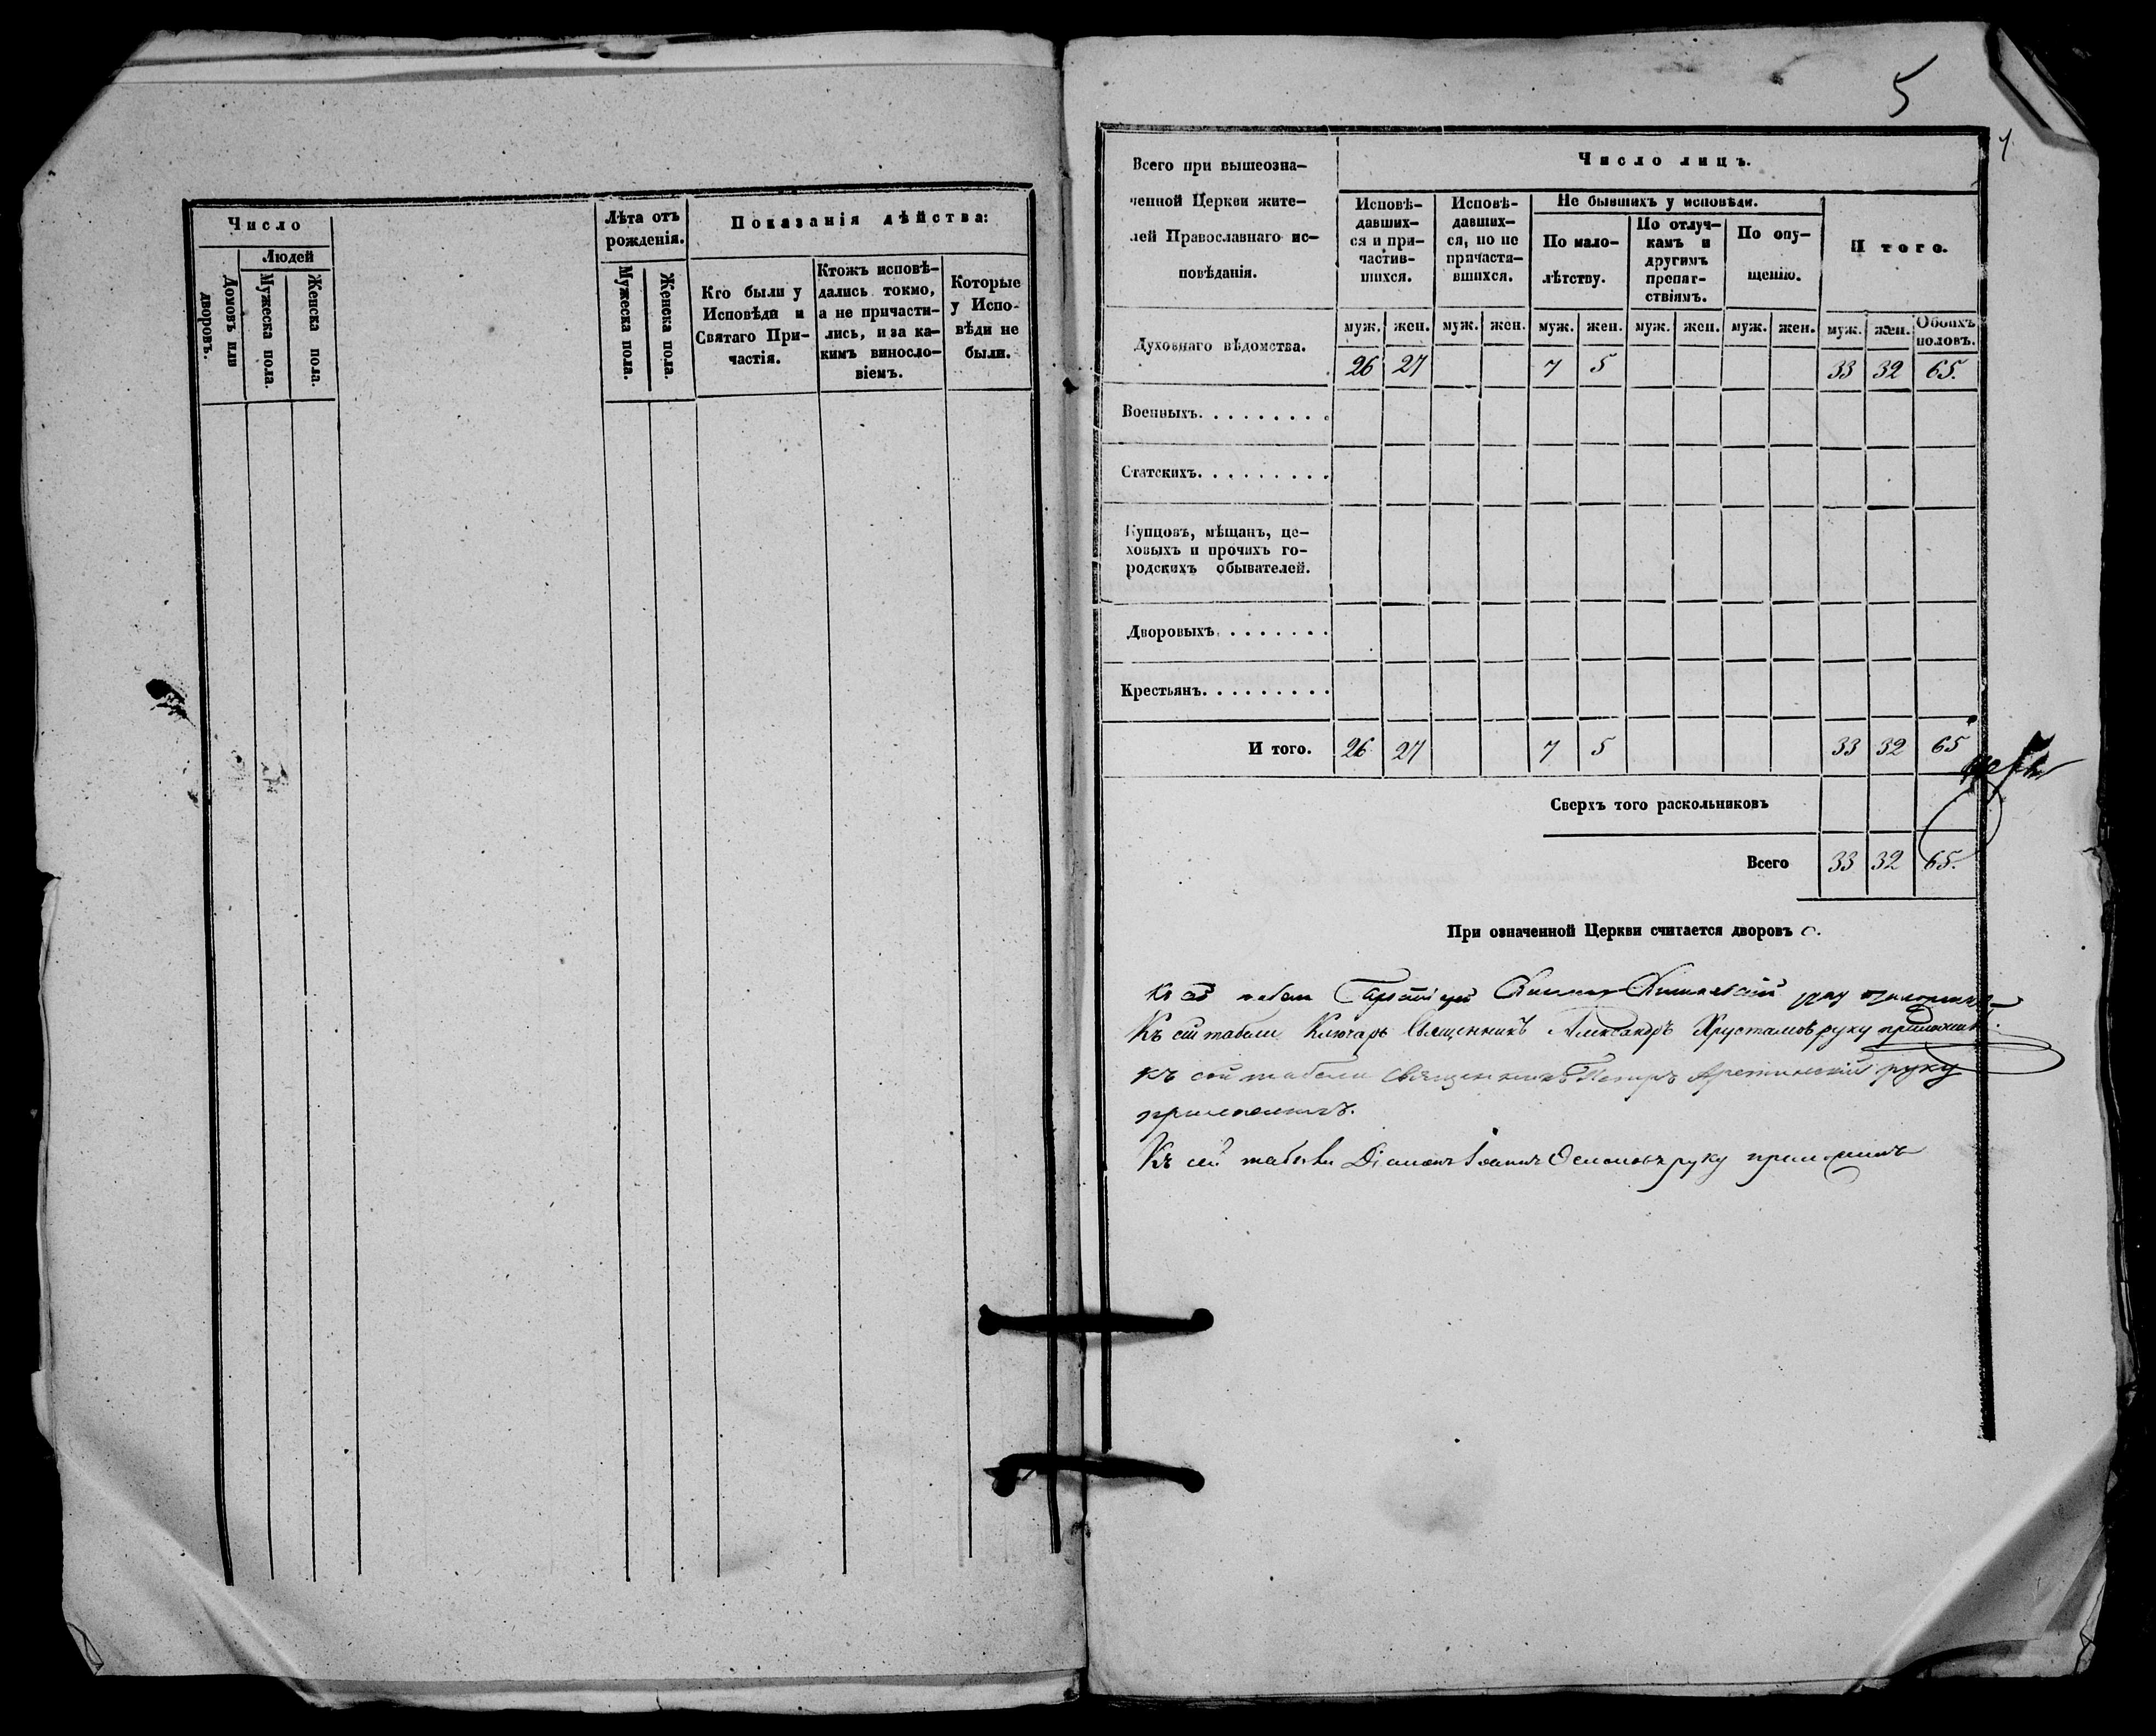 Число
Людей
Домовъ или дворовъ.
Мужеска пола.
Женска пола.
Лѣта отъ
рожденія.
Мужеска пола.
Женска пола.
Показанія дѣйства:
Кто были у
Исповѣди и
Святаго При-
частія.
Ктожъ исповѣ-
дались токмо,
а не причасти-
лись, и за ка-
кимъ винносло-
віемъ.
Которые
у Испо-
вѣди не
были.
5
Всего при вышеозна-
ченной Церкви жите-
лей Православнаго ис-
повѣданія.
Число лицъ.
Исповѣ-
давших-
ся и при-
частив-
шихся.
Исповѣ-
давших-
ся, но не
причастя-
вшихся.
Не бывшихъ у исповѣди.
По мало-
лѣтству.
По отлуч-
камъ и
другимъ
препят-
ствіямъ.
По опу-
щенію.
И того.
муж. жен. муж. жен. муж. жен. муж. жен. муж. жен. муж. жен. Обоихъ половъ.
Духовнаго вѣдомства. 26 27 7 5 33 32 65.
Военныхъ.
Статскихъ.
Купцовъ, мѣщанъ, це-
ховыхъ и прочихъ го-
родскихъ обывателей.
Дворовыхъ
Крестьянъ.
И того. 26 27 7 5 33 32 65
Сверхъ того раскольниковъ
Всего 33 32 65.
При означенной Церкви считается дворовъ
Къ сей табели Ключарь Священникъ Александръ Хрусталевъ руку приложилъ.
Къ сей табели Священникъ Петръ руку
приложилъ.
Къ сей табели Діаконъ Іоаннъ руку приложилъ